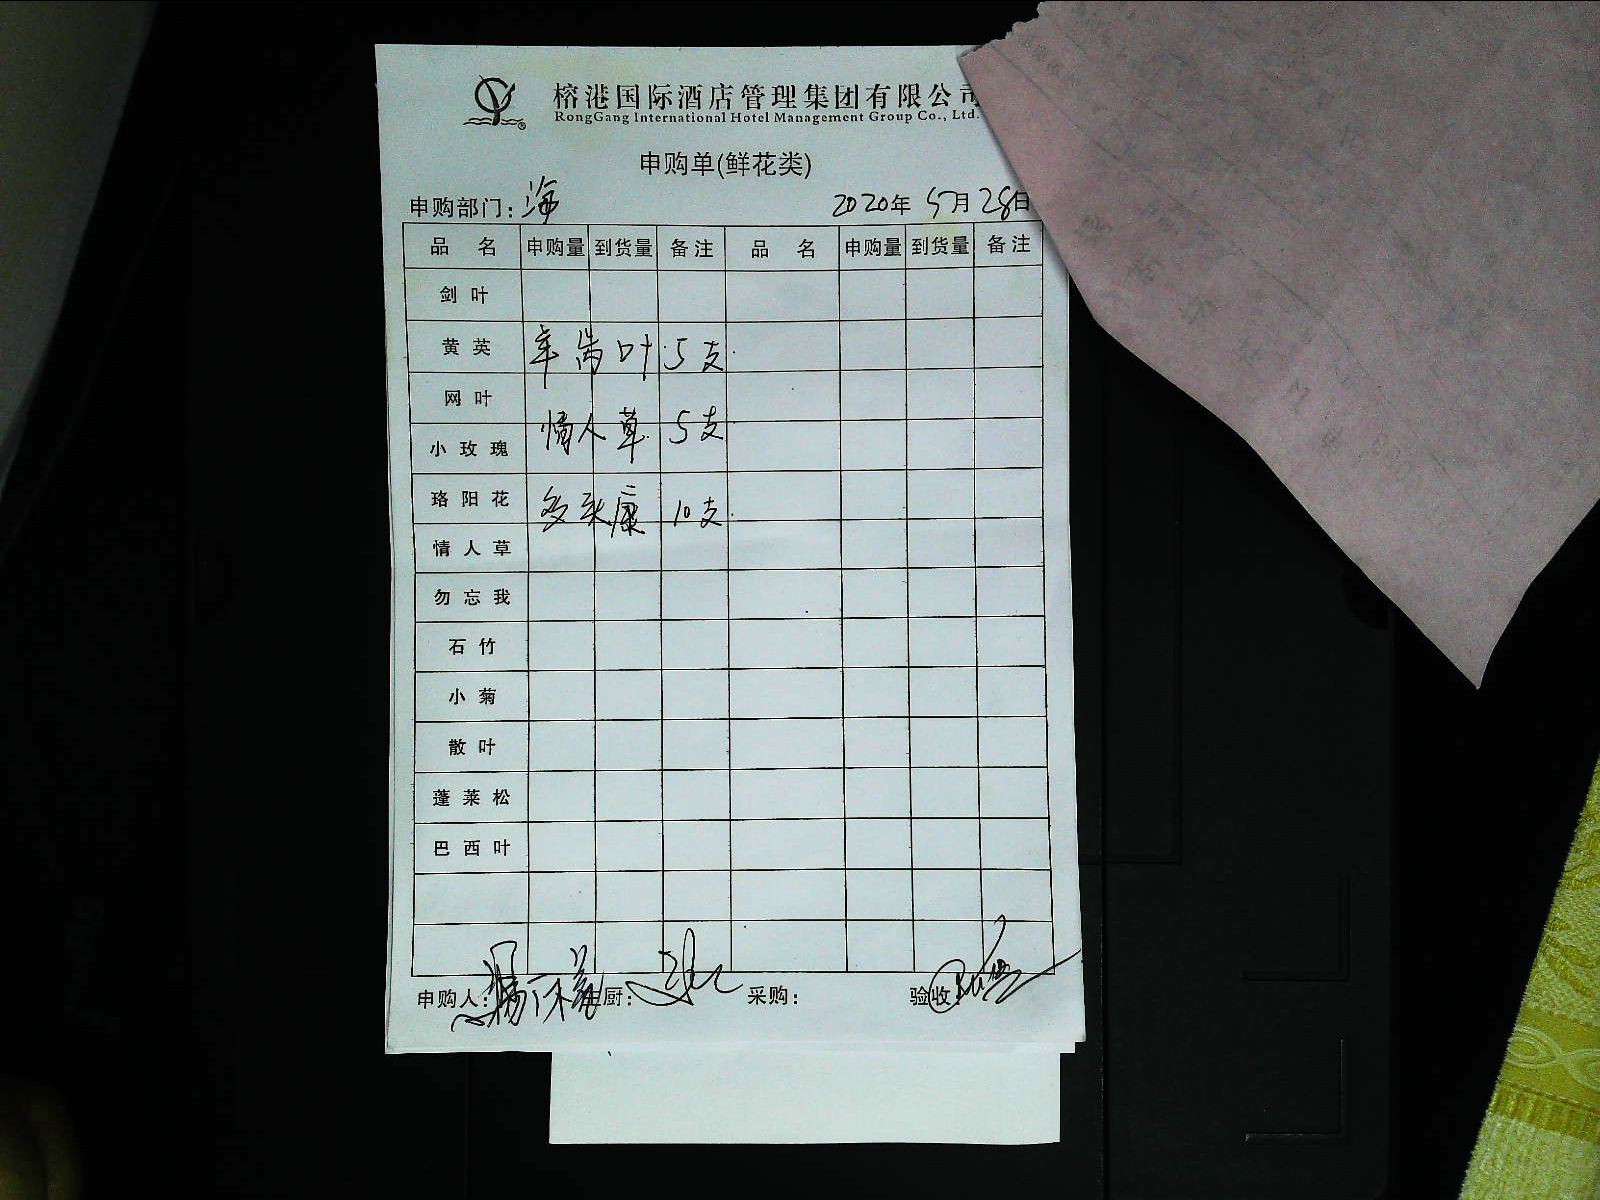 榕港国际酒店管理集团有限公司
RongGang International Hotel Management Group Co., Ltd.
申购单(鲜花类)
申购部门：海 2020年 5月 28日
品 名 申购量 到货量 备注 品 名 申购量 到货量 备注
剑叶
黄英 叶 5支
网叶
情人草 5支
小玫瑰
珞阳花 多头康 10支
情人草
勿忘我
石竹
小菊
散叶
蓬莱松
巴西叶
申购人： 厨： 采购： 验收